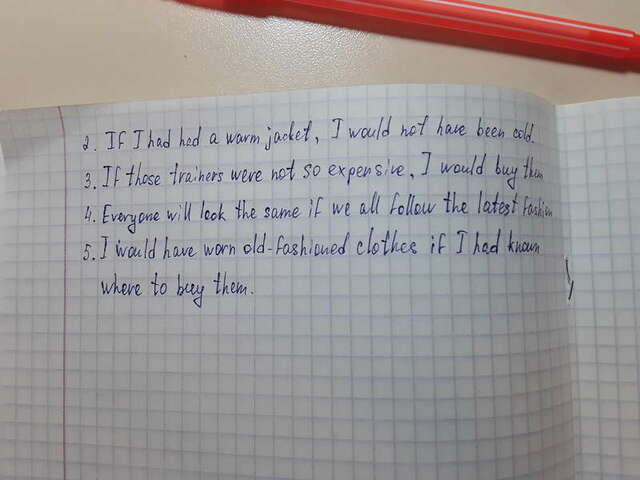 2. If I had had a warm jacket, I would not have been cold.
3. If those trainers were not so expensive, I would buy them
4. Everyone will look the same if we all follow the latest fashion
5. I would have worn old-fashioned clothes if I had known
where to buy them.